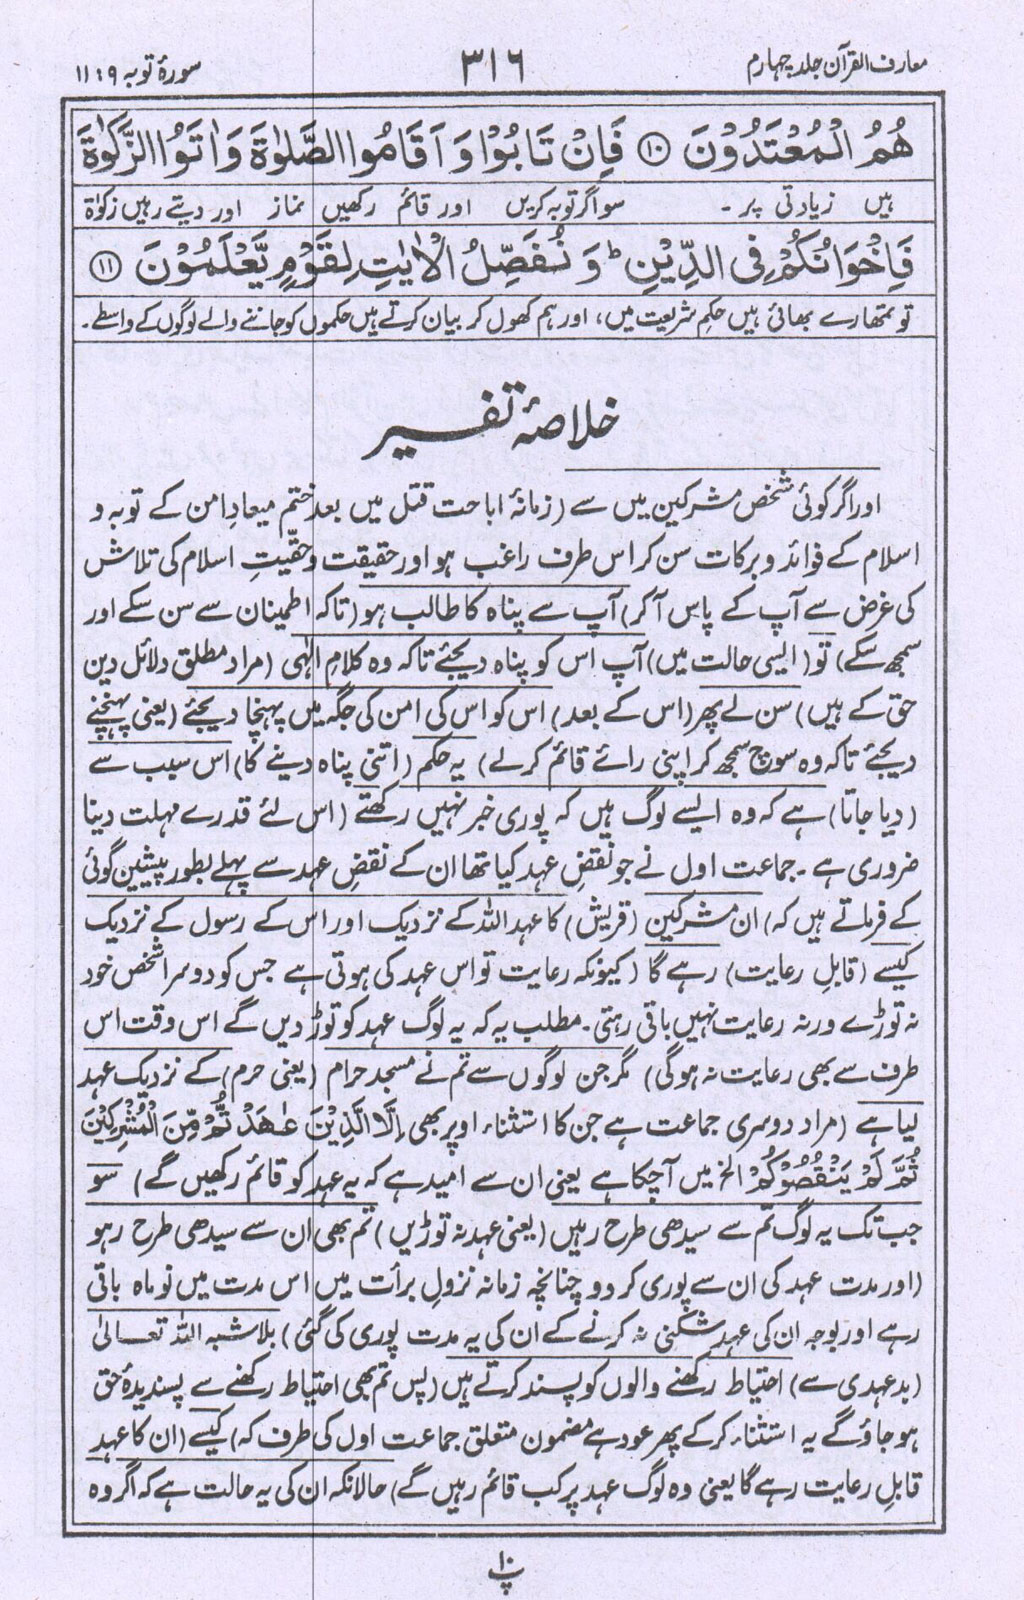 معارف القرآن جلد چہارم ۳۱۶ سورۂ توبہ ۹ : ۱۱
هُمُ الْمُعْتَدُوْنَ ⑩ فَاِنْ تَابُوْا وَ اَقَامُوا الصَّلٰوةَ وَ اٰتَوُا الزَّكٰوةَ
ہیں زیادتی پر ۔ سو اگر توبہ کریں اور قائم رکھیں نماز اور دیتے رہیں زکوٰة
فَاِخْوَانُكُمْ فِى الدِّيْنِ ؕ وَ نُفَصِّلُ الْاٰيٰتِ لِقَوْمٍ يَّعْلَمُوْنَ ⑪
تو تمھارے بھائی ہیں حکمِ شریعت میں، اور ہم کھول کر بیان کرتے ہیں حکموں کو جاننے والے لوگوں کے واسطے۔
خلاصۂ تفسیر
اور اگر کوئی شخص مشرکین میں سے (زمانۂ اباحت قتل میں بعد ختم میعادِ امن کے توبہ و
اسلام کے فوائد و برکات سن کر اس طرف راغب ہو اور حقیقت و حقیّتِ اسلام کی تلاش
کی غرض سے آپ کے پاس آ کر) آپ سے پناہ کا طالب ہو (تاکہ اطمینان سے سن سکے اور
سمجھ سکے) تو (ایسی حالت میں) آپ اس کو پناہ دیجئے تاکہ وہ کلام الٰہی (مراد مطلق دلائل دین
حق کے ہیں) سن لے پھر (اس کے بعد) اس کو اس کی امن کی جگہ میں پہنچا دیجئے (یعنی پہنچنے
دیجئے تاکہ وہ سوچ سمجھ کر اپنی رائے قائم کر لے) یہ حکم (اتنی پناہ دینے کا) اس سبب سے
(دیا جاتا) ہے کہ وہ ایسے لوگ ہیں کہ پوری خبر نہیں رکھتے (اس لئے قدرے مہلت دینا
ضروری ہے ۔ جماعت اول نے جو نقضِ عہد کیا تھا ان کے نقضِ عہد سے پہلے بطور پیشین گوئی
کے فرماتے ہیں کہ) ان مشرکین (قریش) کا عہد اللہ کے نزدیک اور اس کے رسول کے نزدیک
کیسے (قابلِ رعایت) رہے گا (کیونکہ رعایت تو اس عہد کی ہوتی ہے جس کو دوسرا شخص خود
نہ توڑے ورنہ رعایت نہیں باقی رہتی ۔ مطلب یہ کہ یہ لوگ عہد کو توڑ دیں گے اس وقت اس
طرف سے بھی رعایت نہ ہوگی) مگر جن لوگوں سے تم نے مسجد حرام (یعنی حرم) کے نزدیک عہد
لیا ہے (مراد دوسری جماعت ہے جن کا استثناء اوپر بھی اِلَّا الَّذِيْنَ عٰهَدْتُّمْ مِّنَ الْمُشْرِكِيْنَ
ثُمَّ لَمْ يَنْقُصُوْكُمْ الخ میں آ چکا ہے یعنی ان سے امید ہے کہ یہ عہد کو قائم رکھیں گے) سو
جب تک یہ لوگ تم سے سیدھی طرح رہیں (یعنی عہد نہ توڑیں) تم بھی ان سے سیدھی طرح رہو
(اور مدت عہد کی ان سے پوری کر دو چنانچہ زمانہ نزولِ برأت میں اس مدت میں نو ماہ باقی
رہے اور بوجہ ان کی عہد شکنی نہ کرنے کے ان کی یہ مدت پوری کی گئی) بلا شبہ اللہ تعالیٰ
(بد عہدی سے) احتیاط رکھنے والوں کو پسند کرتے ہیں (پس تم بھی احتیاط رکھنے سے پسندیدۂ حق
ہو جاؤ گے یہ استثناء کر کے پھر عود ہے مضمون متعلق جماعت اول کی طرف کہ) کیسے (ان کا عہد
قابلِ رعایت رہے گا یعنی وہ لوگ عہد پر کب قائم رہیں گے) حالانکہ ان کی یہ حالت ہے کہ اگر وہ
پ۱۰